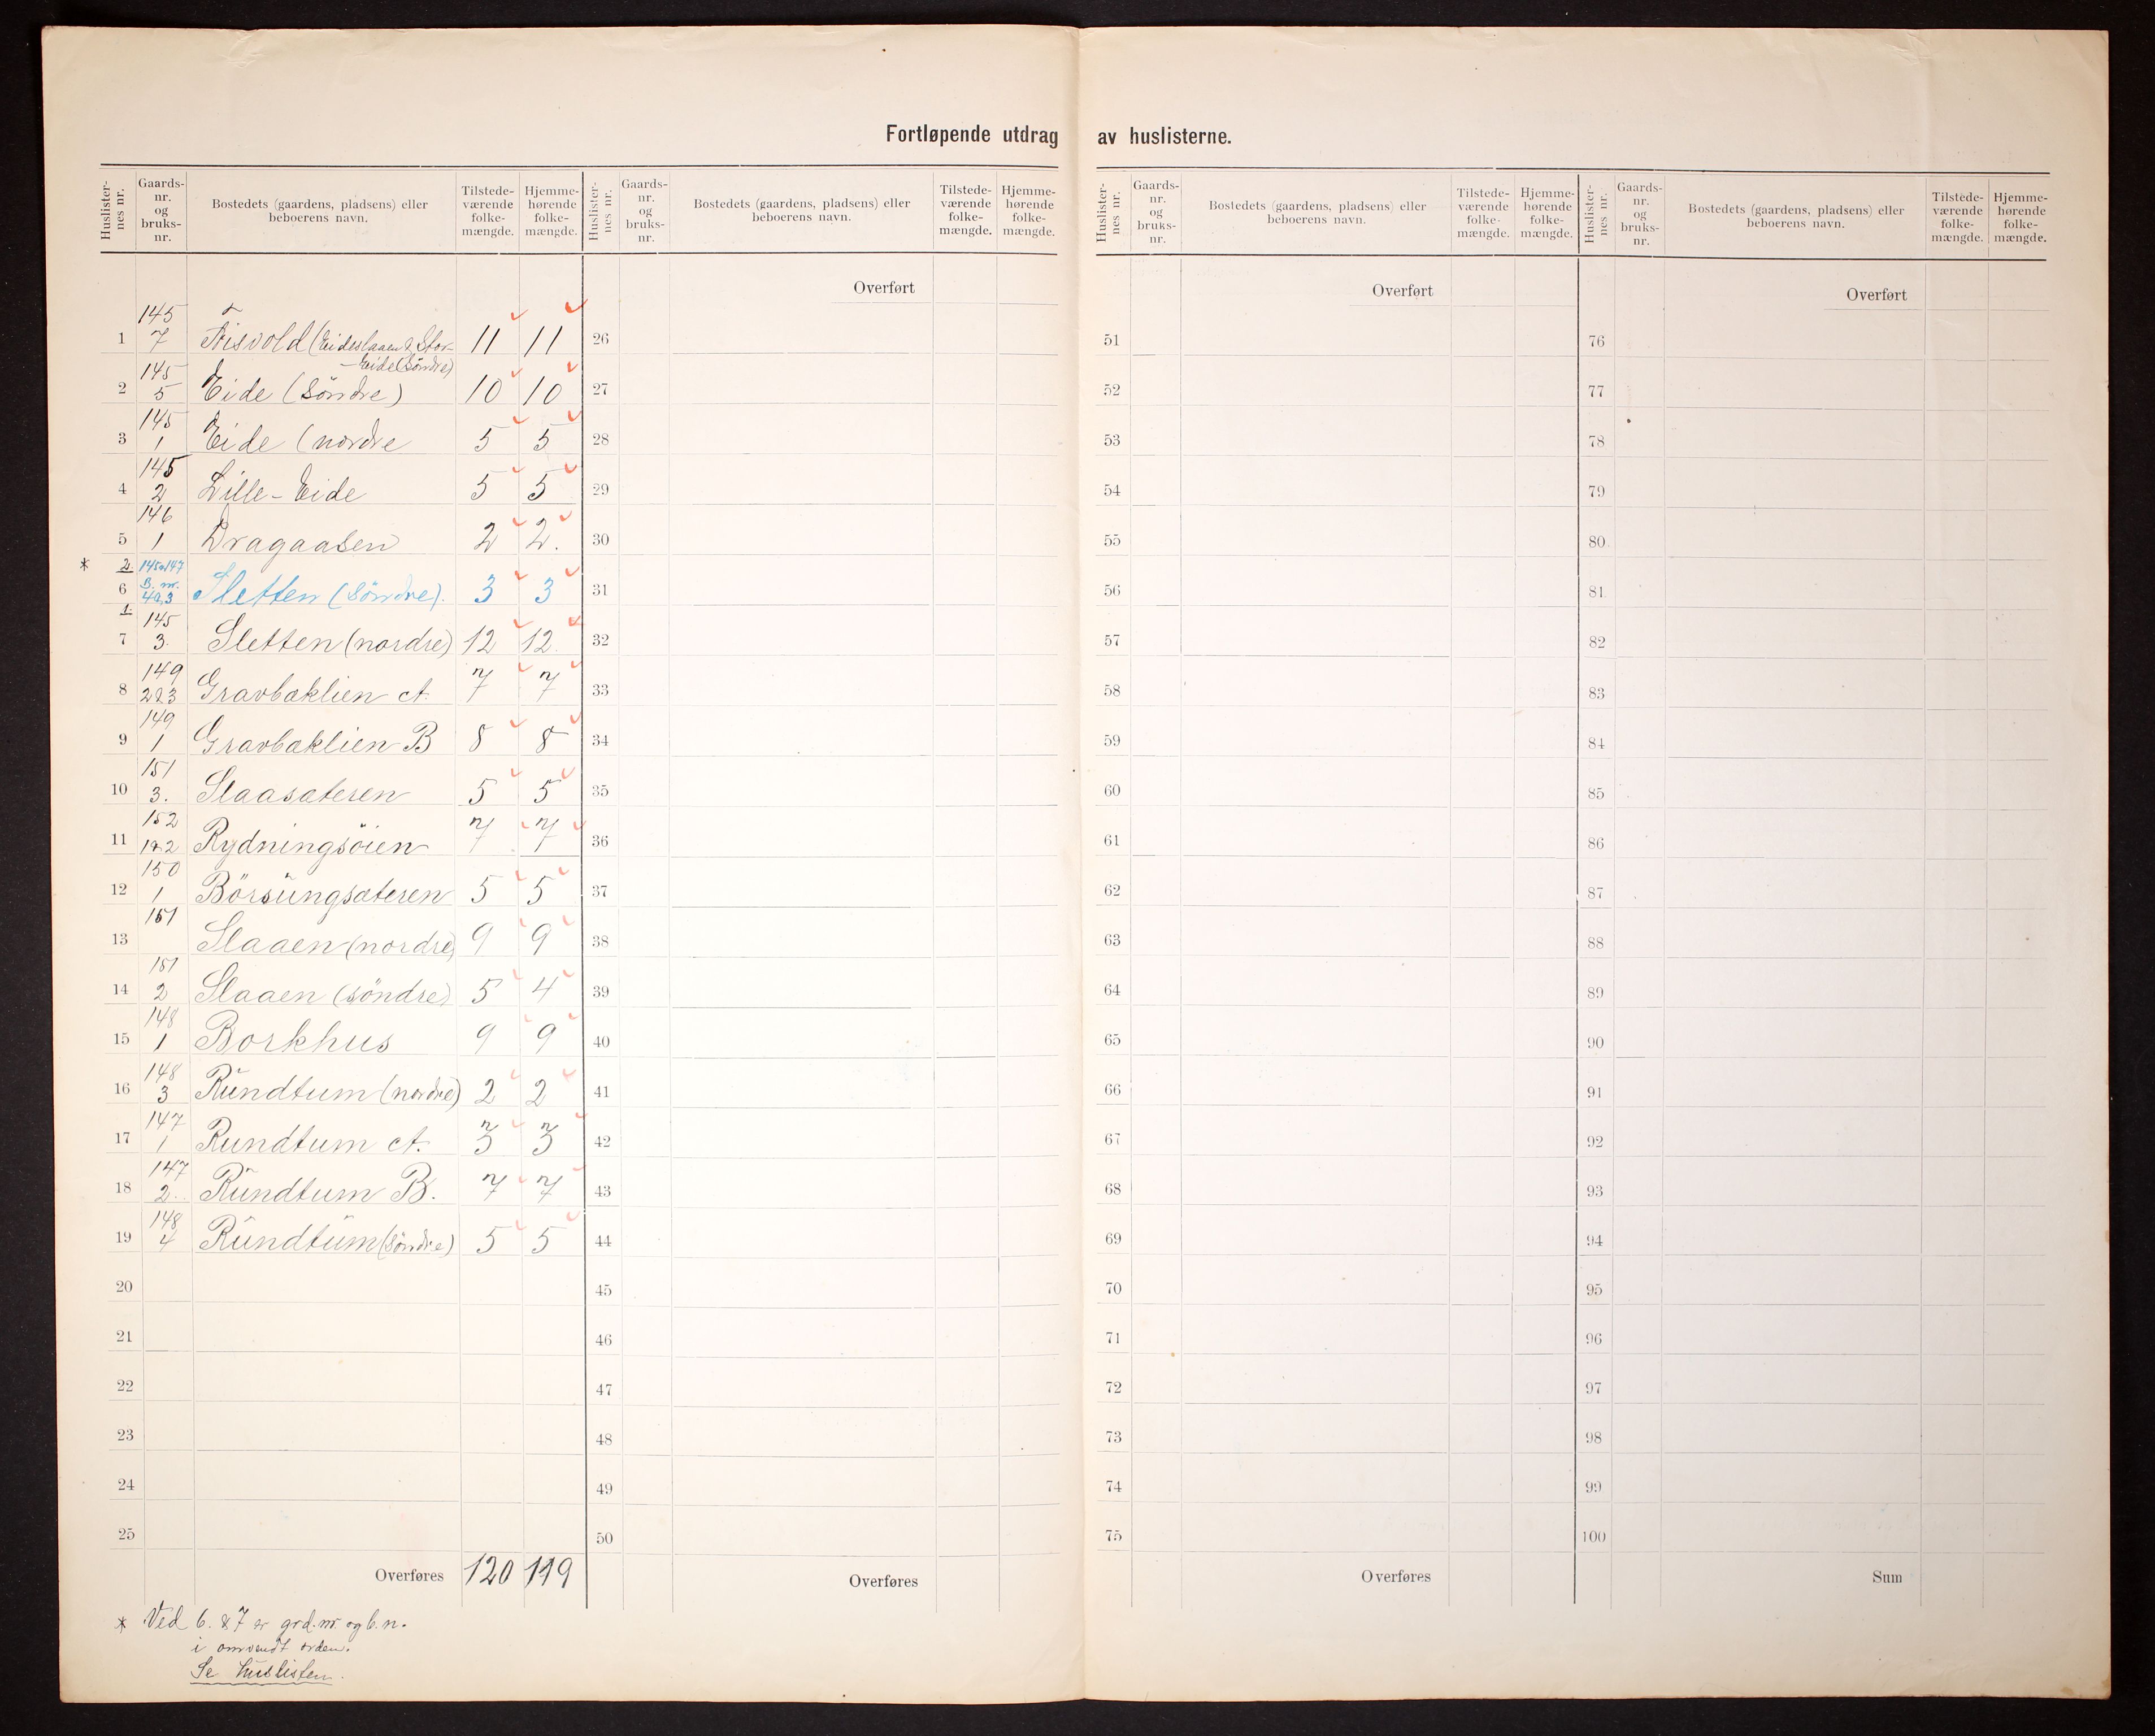 Fortløpende utdrag av huslisterne.
Huslister-nes nr. Gaards-nr. og bruks-nr. Bostedets (gaardens, pladsens) eller beboerens navn. Tilstede-værende folke-mængde. Hjemme-hørende folke-mængde. Huslister-nes nr. Gaards-nr. og bruks-nr. Bostedets (gaardens, pladsens) eller beboerens navn. Tilstede-værende folke-mængde. Hjemme-hørende folke-mængde. Huslister-nes nr. Gaards-nr. og bruks-nr. Bostedets (gaardens, pladsens) eller beboerens navn. Tilstede-værende folke-mængde. Hjemme-hørende folke-mængde. Huslister-nes nr. Gaards-nr. og bruks-nr. Bostedets (gaardens, pladsens) eller beboerens navn. Tilstede-værende folke-mængde. Hjemme-hørende folke-mængde.
Overført Overført Overført
145
1 7 (Eideslaaen & Stor- 11 11 26 51 76
Eide (Söndre)
145
2 5 Eide (Söndre) 10 10 27 52 77
145
3 1 Eide (nordre 5 5 28 53 78
145
4 2 Lille-Eide 5 5 29 54 79
146
5 1 Dragaasen 2 2. 30 55 80
* 2 145 147
B. nr.
6 4 3 Sletten (Söndre). 3 3 31 56 81
1
145
7 3. Sletten (nordre) 12 12 32 57 82
149
8 2&3 Gravbæklien A. 7 7 33 58 83
149
9 1 Gravbæklien B 8 8 34 59 84
151
10 3. Slaasæteren 5 5 35 60 85
152
11 1&2 Rydningsöien 7 7 36 61 86
150
12 1 Börsungsæteren 5 5 37 62 87
151
13 Slaaen (nordre) 9 9 38 63 88
151
14 2 Slaaen (söndre) 5 4 39 64 89
148
15 1 Borkhus 9 9 40 65 90
148
16 3 Rundtum (nordre) 2 2 41 66 91
147
17 1 Rundtum A. 3 3 42 67 92
147
18 2. Rundtum B. 7 7 43 68 93
148
19 4 Rundtum (Söndre) 5 5 44 69 94
20 45 70 95
21 46 71 96
22 47 72 97
23 48 73 98
24 49 74 99
25 50 75 100
Overføres 120 119 Overføres Overføres Sum
* Ved 6. & 7 er grd. nr. og b. n.
i omvendt orden.
Se huslisten.